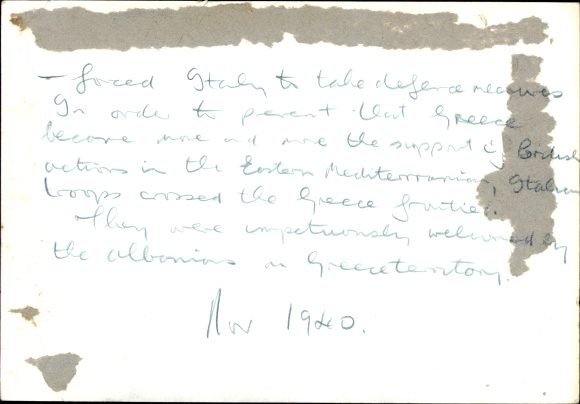 – forced Italy to take defence measures
In order to prevent that Greece
become more and more the support of British
actions in the Eastern Mediterranian, Italian
troops crossed the Greece frontier.
They were impetuously welcomed by
the albanians in Greece teretory.
Nov 1940.